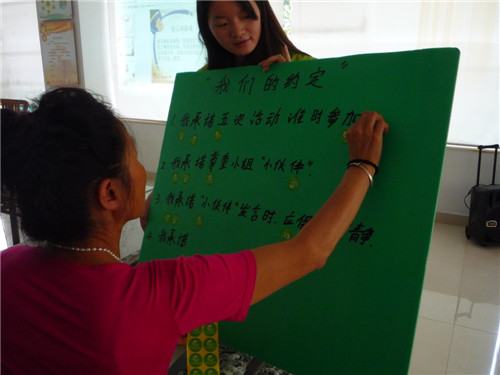 "我们的约定"
1. 我承诺五次活动准时参加
2. 我承诺尊重小组"小伙伴".
3. 我承诺"小伙伴"发言时,应保 静.
4. 我承诺